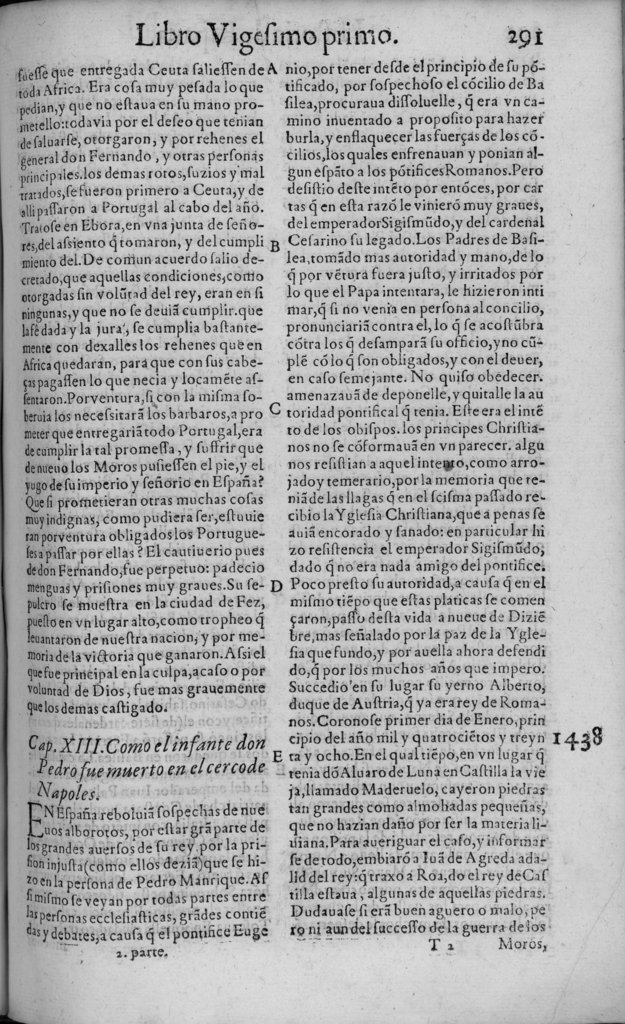 Libro Vigesimo primo. 291
fuesse que entregada Ceuta saliessen de
toda Africa. Era cosa muy pesada lo que
pedian, y que no estaua en su mano pro-
metello: todavia por el deseo que tenian
de saluarse, otorgaron, y por rehenes el
general don Fernando, y otras personas
principales. los demas rotos, suzios y mal
tratados, se fueron primero a Ceuta, y de
alli passaron a Portugal al cabo del año.
Tratose en Ebora, en vna junta de seño-
res, del assiento q̃ tomaron, y del cumpli
miento del. De comun acuerdo salio de-
cretado, que aquellas condiciones, como
otorgadas sin volũtad del rey, eran en si
ningunas, y que no se deuiã cumplir. que
la fê dada y la jura, se cumplia bastante-
mente con dexalles los rehenes que en
Africa quedaran, para que con sus cabe-
ças pagassen lo que necia y locamẽte as-
sentaron. Porventura, si con la misma so-
beruia los necessitarã los barbaros, a pro
meter que entregariã todo Portugal, era
de cumplir la tal promessa, y suffrir que
de nueuo los Moros pusiessen el pie, y el
yugo de su imperio y señorio en España?
Que si prometieran otras muchas cosas
muy indignas, como pudiera ser, estuuie
ran porventura obligados los Portugue-
ses a passar por ellas? El cautiuerio pues
de don Fernando, fue perpetuo: padecio
menguas y prisiones muy graues. Su se-
pulcro se muestra en la ciudad de Fez,
puesto en vn lugar alto, como tropheo q̃
leuantaron de nuestra nacion, y por me-
moria de la victoria que ganaron. Assi el
que fue principal en la culpa, acaso o por
voluntad de Dios, fue mas grauemente
que los demas castigado.
Cap. XIII. Como el infante don
Pedro fue muerto en el cerco de
Napoles.
EN España reboluiã sospechas de nue
uos alborotos, por estar grã parte de
los grandes auersos de su rey. por la pri-
sion injusta (como ellos deziã) que se hi-
zo en la persona de Pedro Manrique. As
si mismo se veyan por todas partes entre
las personas ecclesiasticas, grãdes contiẽ
das y debates, a causa q̃ el pontifice Euge
2. parte.
A
B
C
D
E
nio, por tener desde el principio de su põ-
tificado, por sospechoso el cõcilio de Ba
silea, procuraua dissoluelle, q̃ era vn ca-
mino inuentado a proposito para hazer
burla, y enflaquecer las fuerças de los cõ-
cilios, los quales enfrenauan y ponian al-
gun espãto a los põtifices Romanos. Pero
desistio deste intẽto por entõces, por car
tas q̃ en esta razõ le vinierõ muy graues,
del emperador Sigismũdo, y del cardenal
Cesarino su legado. Los Padres de Basi-
lea, tomãdo mas autoridad y mano, de lo
q̃ por vẽtura fuera justo, y irritados por
lo que el Papa intentara, le hizieron inti
mar, q̃ si no venia en persona al concilio,
pronunciariã contra el, lo q̃ se acostũbra
cõtra los q̃ desamparã su officio, y no cũ-
plẽ cõ lo q̃ son obligados, y con el deuer,
en caso semejante. No quiso obedecer.
amenazauã de deponelle, y quitalle la au
toridad pontifical q̃ tenia. Este era el intẽ
to de los obispos. los principes Christia-
nos no se cõformauã en vn parecer. algu
nos resistian a aquel intento, como arro-
jado y temerario, por la memoria que te-
niã de las llagas q̃ en el scisma passado re-
cibio la Yglesia Christiana, que a penas se
auiã encorado y sanado: en particular hi
zo resistencia el emperador Sigismũdo,
dado q̃ no era nada amigo del pontifice.
Poco presto su autoridad, a causa q̃ en el
mismo tiẽpo que estas platicas se comen
çaron, passo desta vida a nueue de Diziẽ
bre, mas señalado por la paz de la Ygle-
sia que fundo, y por auella ahora defendi
do, q̃ por los muchos años que impero.
Succedio en su lugar su yerno Alberto,
duque de Austria, q̃ ya era rey de Roma-
nos. Coronose primer dia de Enero, prin
cipio del año mil y quatrociẽtos y treyn 1438
ta y ocho. En el qual tiẽpo, en vn lugar q̃
tenia dõ Aluaro de Luna en Castilla la vie
ja, llamado Maderuelo, cayeron piedras
tan grandes como almohadas pequeñas,
que no hazian daño por ser la materia li-
uiana. Para aueriguar el caso, y informar
se de todo, embiarõ a Iuã de Agreda ada-
lid del rey: q̃ traxo a Roa, do el rey de Cas
tilla estaua, algunas de aquellas piedras.
Dudauase si erã buen aguero o malo, pe
ro ni aun del successo de la guerra de los
T 2 Moros,